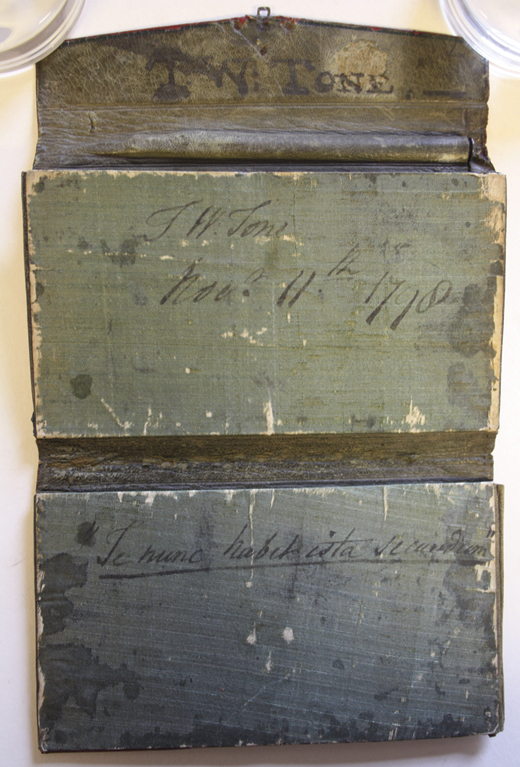 T. W. TONE.
T. W. Tone
Novr. 11th. 1798
"Te nunc habet ista secundum"